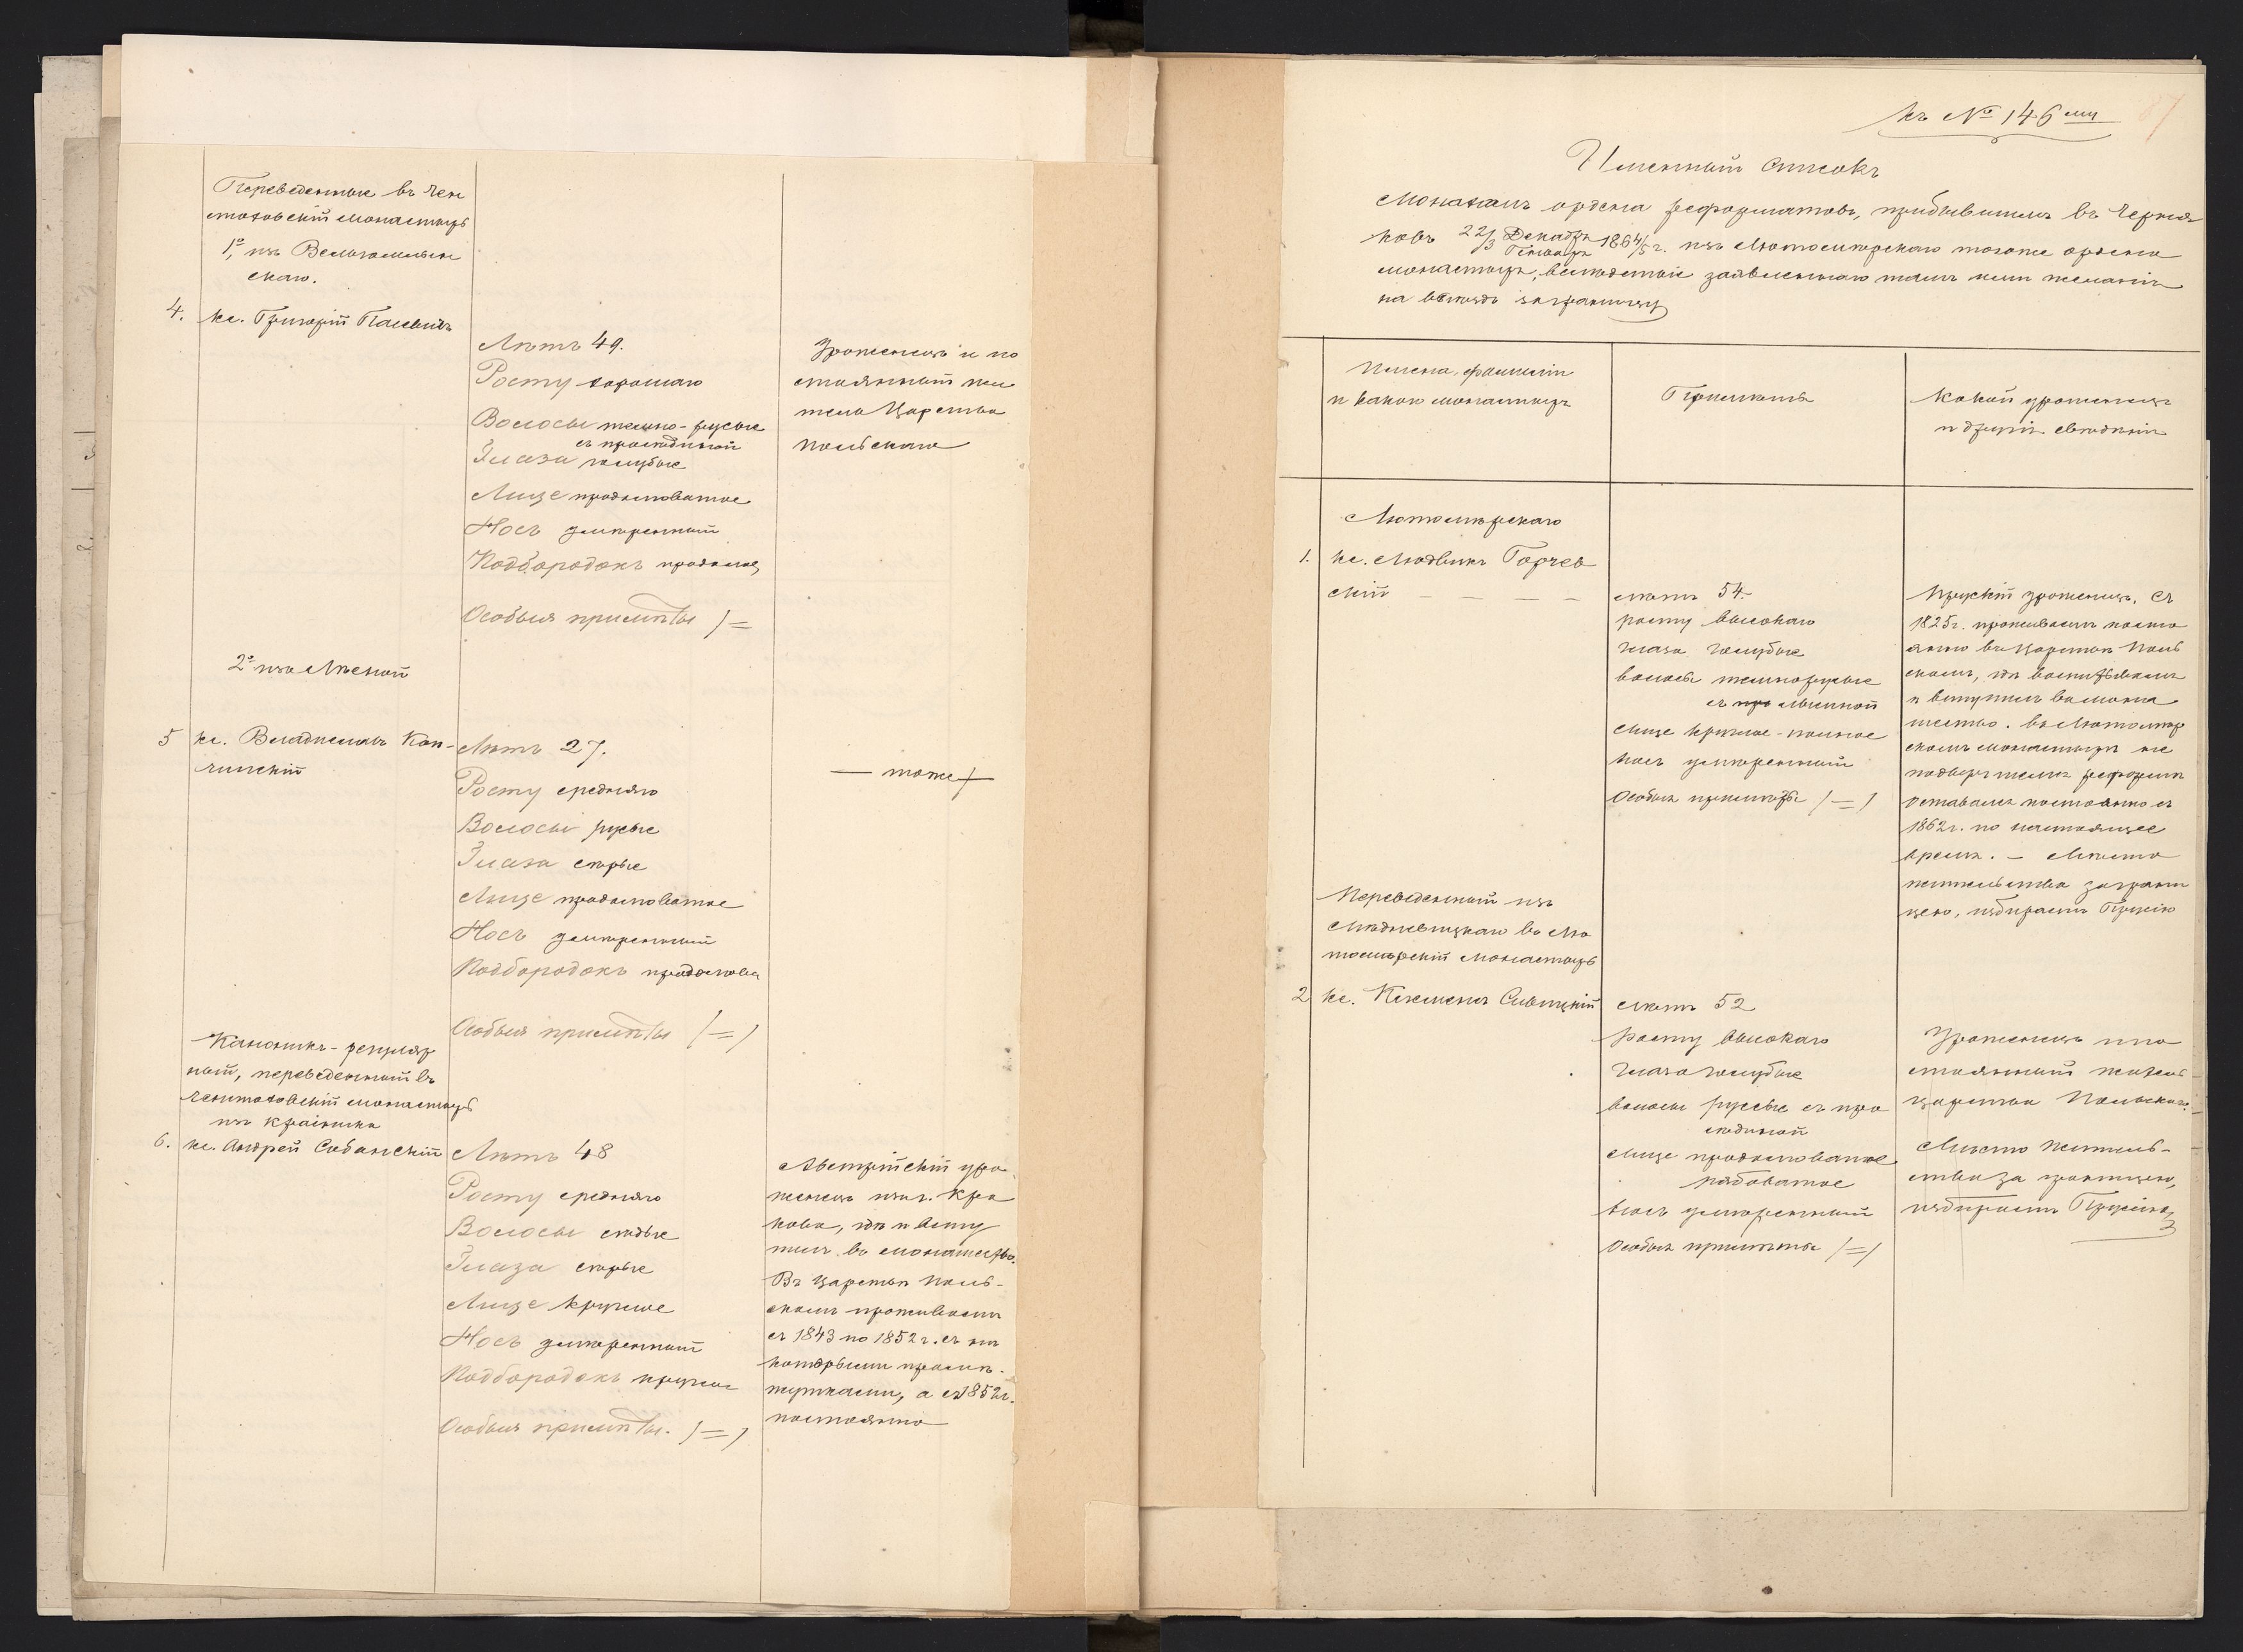 Переведенные въ Чен
стоховскій монастырь
1º, изъ Велюнскаго
4. кс. Григорій Палевичъ
Лѣтъ 49.
Росту хорошаго
Волосы темно-русые
съ просѣдиной
Глаза голубые
Лице продолговатое
Носъ умѣренный
Подбородокъ продолгов
Особыя примѣты /=
Уроженецъ и по
стоянный жи
тель Царства
Польскаго
2º изъ Лѣсной
5 кс. Владиславъ Коп-
чинскій
Лѣтъ 27.
Росту средняго
Волосы русые
Глаза сѣрые
Лице продолговатое
Носъ умѣренный
Подбородокъ продолгова
Особыя примѣты /=/
— тоже —
Каноникъ-регуляр
ный, переведенный въ
Ченстоховскій монастырь
изъ Красника
6. кс. Андрей Собанскій
Лѣтъ 48
Росту средняго
Волосы сѣдые
Глаза сѣрые
Лице круглое
Носъ умѣренный
Подбородокъ круглы
Особыя примѣты. /=/
Австрійскій уро
женецъ изъ г. Кра
кова, гдѣ и всту
пилъ въ монашество.
Въ Царствѣ Поль-
скомъ проживаетъ
съ 1843 по 1852 г. съ нѣ
которыми промѣ-
жутками, а съ 1852 г.
постоянно
къ № 146 му
87
Именный списокъ
Монахамъ ордена реформатовъ, прибывшимъ въ Черня
ковъ 22/3 Декабря/Генваря 1864/5 г. изъ Лютомирскаго тогоже ордена
монастыря, вслѣдствіе заявленнаго тамъ ими желанія
на выѣздъ заграницу
Имена, фамиліи
и какого монастыря
Примѣты
Какой уроженецъ
и другія свѣдѣнія
Лютомірскаго
1. кс. Людвикъ Горчев
скій — — — —
лѣтъ 54.
росту высокаго
глаза голубые
волосы темнорусые
съ лысиной
лице круглое-полное
носъ умѣренный
Особыя примѣты /=/
Прускій уроженецъ. Съ
1825 г. проживаетъ посто
янно въ Царствѣ Поль
скомъ, гдѣ воспитывался
и вступилъ въ мона
шество. въ Лютомір
скомъ монастырѣ не
подвергшемся реформѣ
оставался постоянно съ
1862 г. по настоящее
время. — Мѣсто
жительства заграни
цею, избираетъ Прусію
Переведенный изъ
Мѣдневицкаго въ Лю
томірскій монастырь
2 кс. Клеменсъ Савицкій
лѣтъ 52
росту высокаго
глаза голубые
волосы русые съ про
сѣдиной
лице продолговатое
рябоватое
носъ умѣренный
Особыя примѣты /=/
Уроженецъ и по
стоянный житель
царства Польскаго.
Мѣсто жительс-
тва за границею,
избираетъ Прусію